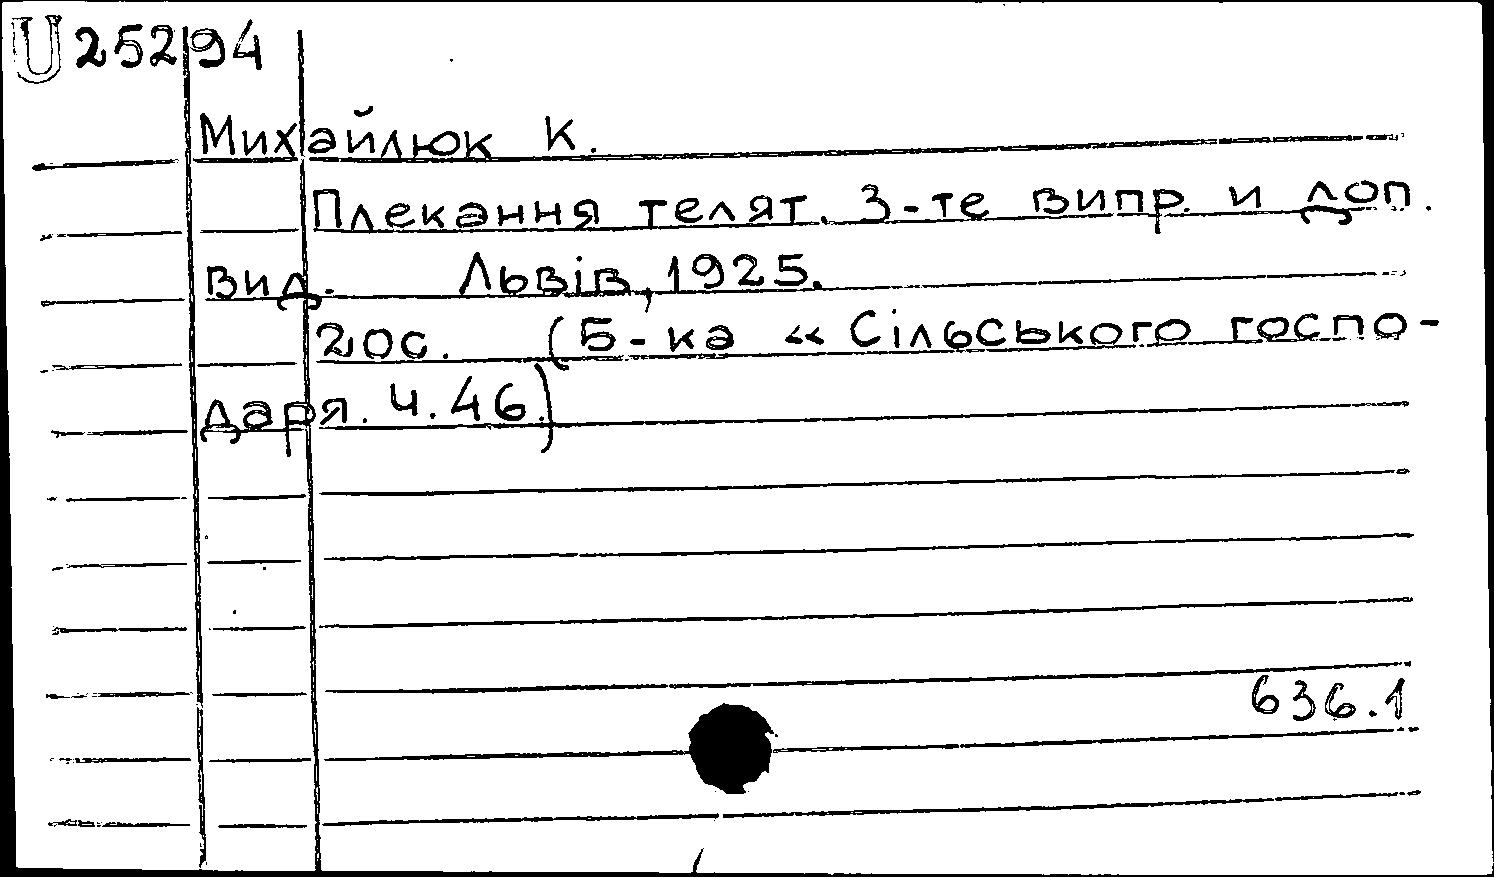 U 25294
Михайлюк К.
Плекання телят. 3-те випр. и доп.
вид. Львів, 1925.
20с. (Б-ка «Сільського госпо-
даря. Ч.46.)
636.1